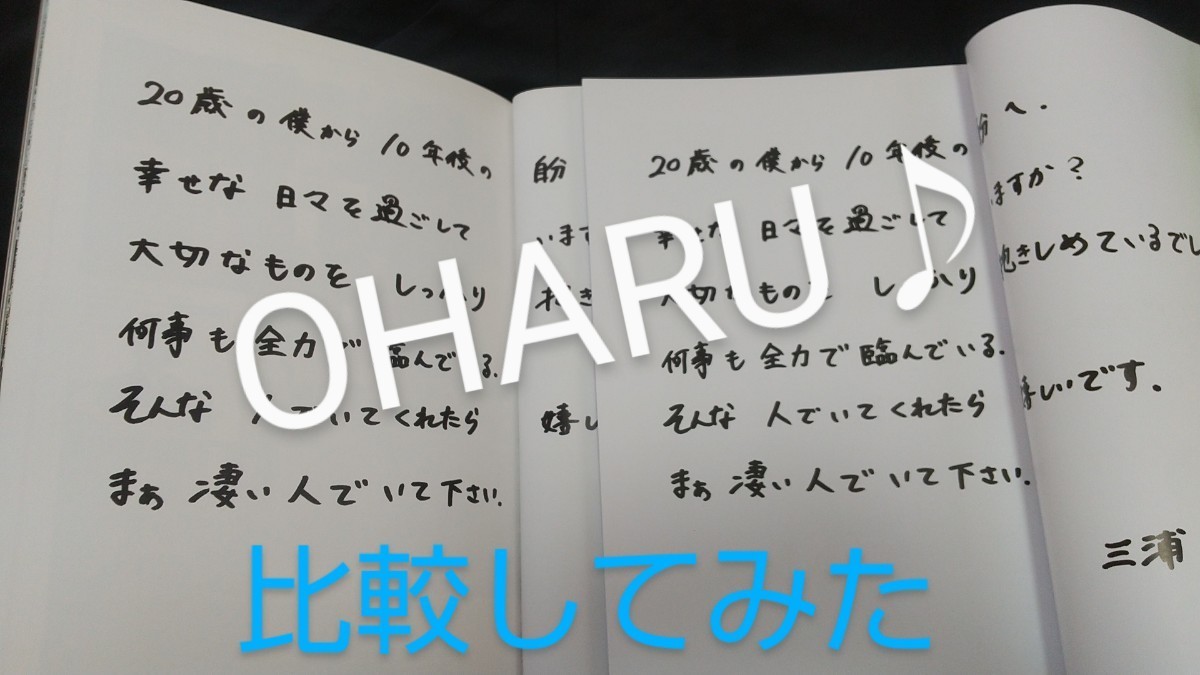 20歳の僕から 10年後の
幸せな 日々を過ごして
大切なものを しっかり
何事も全力で臨んでる.
そんな 人でいてくれたら
まぁ 凄い人でいて下さい.
自分
います
抱き
嬉し
20歳の僕から 10年後の
幸せな 日々を過ごして
大切なものを しっかり
何事も全力で臨んでいる.
そんな 人でいてくれたら
まぁ 凄い人でいて下さい.
分へ.
ますか?
抱きしめているでし
嬉しいです.
三浦
OHARU♪
比較してみた